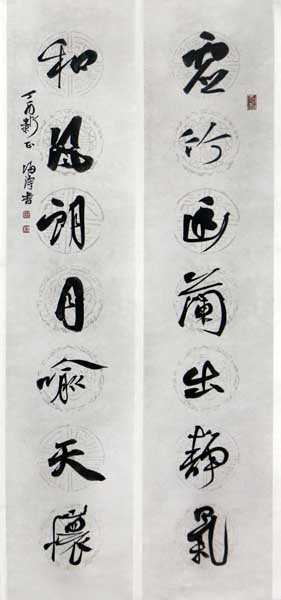 虛竹幽蘭出靜氣
和風朗月喻天懷
丁酉新正 書